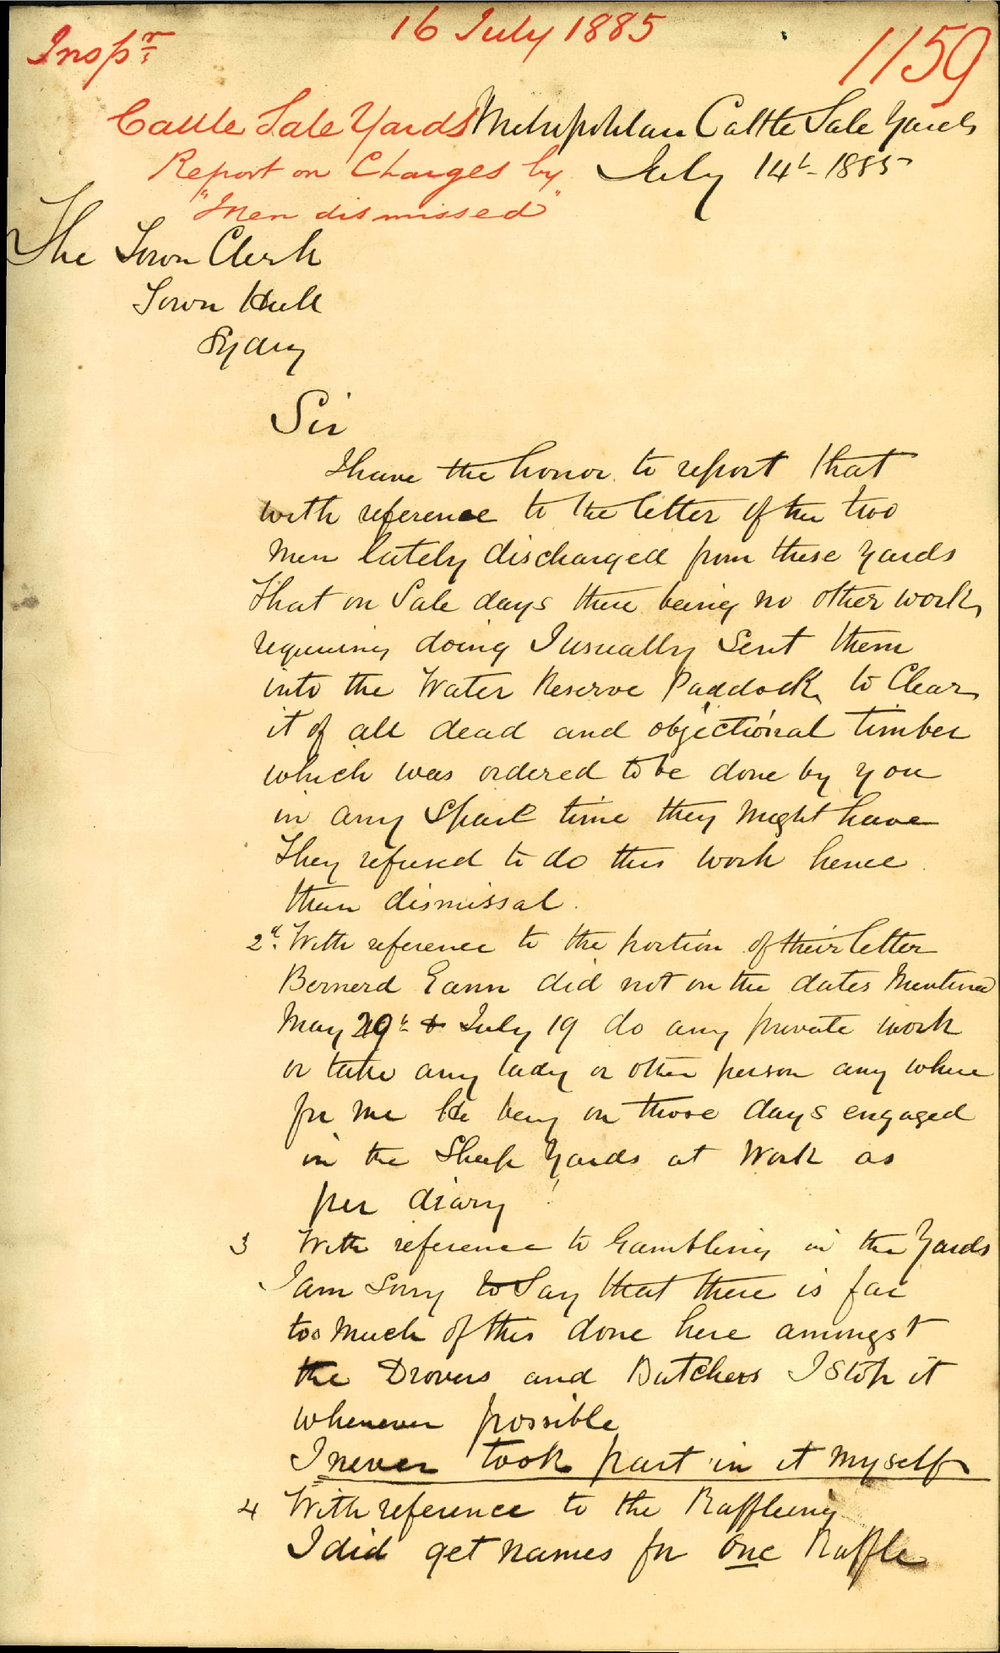 16 July 1885
Inspr.
1159
Cattle Sale Yards
Report on Charges by
"Men dismissed"
Metropolitan Cattle Sale Yards
July 14th 1885
The Town Clerk
Town Hall
Sydny
Sir
I have the honor to report that
with reference to the letter of the two
Men lately discharged from these Yards
that on Sale days there being no other work
requiring doing I usually sent them
into the Water Reserve Paddock to Clear
it of all dead and objectional timber
which was ordered to be done by you
in any spare time they might have
They refused to do this work hence
their dismissal.
2d. With reference to the portion of their letter
Bernerd Gann did not on the dates Mentined
May 29th & July 19 do any private work
or take any lady or other person any where
for me He being on those days engaged
in the Sheep Yards at Work as
per diary
3 With reference to Gambling in the Yards
I am sorry to Say that there is far
too Much of this done here amongst
the Drovers and Butchers I stop it
whenever possible
I never took part in it Myself
4 With reference to the Raffleing
I did get names for One Raffle